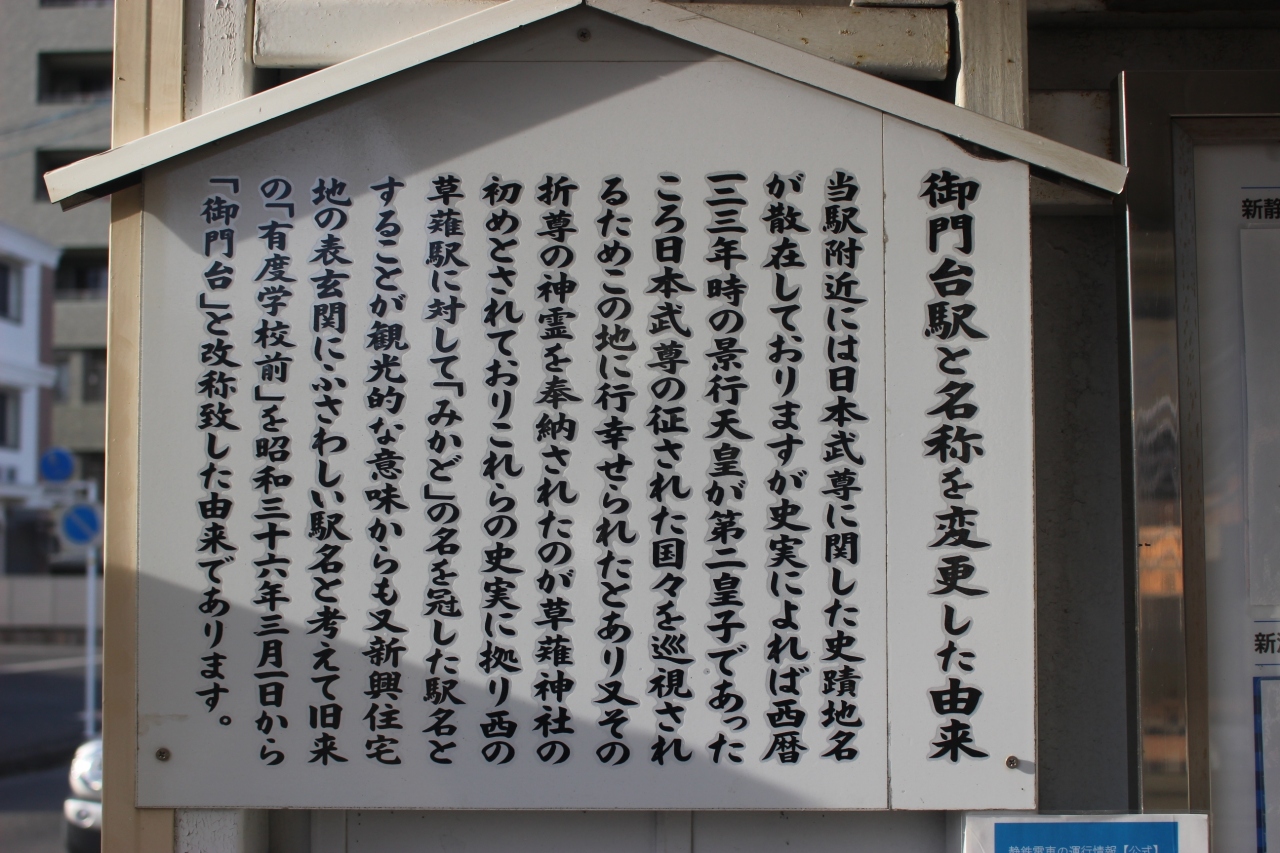 御門台駅と名称を変更した由来
当駅附近には日本武尊に関した史蹟地名
が散在しておりますが史実によれば西暦
一三三年時の景行天皇が第二皇子であった
ころ日本武尊の征された国々を巡視され
るためこの地に行幸せられたとあり又その
折尊の神霊を奉納されたのが草薙神社の
初めとされておりこれらの史実に拠り西の
草薙駅に対して「みかど」の名を冠した駅名と
することが観光的な意味からも又新興住宅
地の表玄関にふさわしい駅名と考えて旧来
の「有度学校前」を昭和三十六年三月一日から
「御門台」と改称致した由来であります。
新静
新
静鉄電車の運行情報【公式】